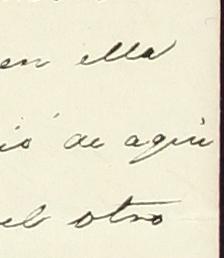 en ella
ió de aqui
el otro